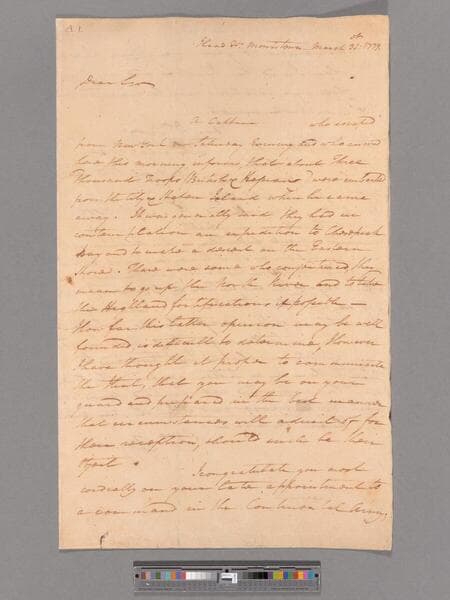 Head Qrs Morristown March 31st 1777.
Dear Sir
A Captain who escaped
from New York on Saturday Evening and who arrived
here this morning informs, that about Three
Thousand Troops British & Hessians were embarked
from the City & Staten Island when he came
away. It was generally said they had in
contemplation an expedition to Chesapeak
Bay and to make a descent on the Eastern
Shore. There were some who conjectured they
mean to go up the North River and to take
the Highland fortifications if possible —
How far this latter opinion may be well
founded is difficult to determine, However
I have thought it proper to communicate
the thing, that you may be on your
guard and prepared in the best manner
that circumstances will admit of for
their reception, should such be their
object.
I congratulate you most
cordially on your late appointment to
a command in the Continental Army,